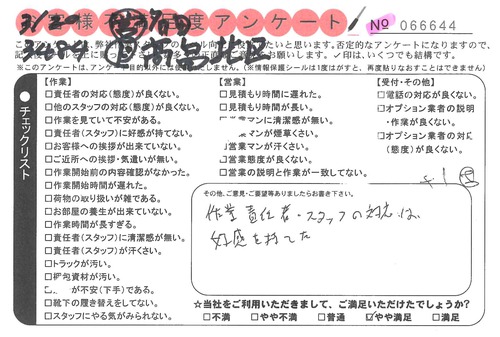 様 度アンケート № 066644
3/20
※このアンケートは、アンケート目的以外には使用いたしません。(※情報保護シールは1度はがすと、再度貼りなおすことはできません)
チェックリスト
【作業】
□責任者の対応(態度)が良くない。
□他のスタッフの対応(態度)が良くない。
□作業を見ていて不安がある。
□責任者(スタッフ)に好感が持てない。
□お客様への挨拶が出来ていない。
□ご近所への挨拶・気遣いが無い。
□作業開始前の内容確認がなかった。
□作業開始時間が遅れた。
□荷物の取り扱いが雑である。
□お部屋の養生が出来ていない。
□作業時間が長すぎる。
□責任者(スタッフ)に清潔感が無い。
□責任者(スタッフ)が汗くさい。
□トラックが汚い。
□梱包資材が汚い。
が不安(下手)である。
□靴下の履き替えをしてない。
□スタッフにやる気がみられない。
【営業】
□見積もり時間に遅れた。
□見積もり時間が長い。
マンに清潔感が無い。
マンが煙草くさい。
□営業マンが汗くさい。
□営業態度が良くない。
□営業の説明と作業が一致してない。
【受付・その他】
□電話の対応が良くない。
□オプション業者の説明
・作業が良くない。
□オプション業者の対応
(態度)が良くない。
その他、ご意見・ご要望等ありましたらお書き下さい。
作業責任者・スタッフの対応は
好感を持てた
☆当社をご利用いただきまして、ご満足いただけたでしょうか?
□不満 □やや不満 □普通 ☑やや満足 □満足